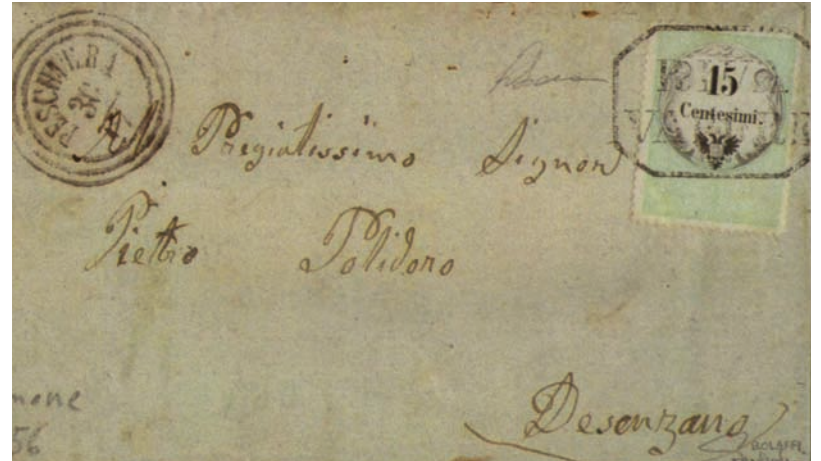 PESCHIERA
30
15
Centesimi.
Al Pregiatissimo Signor
Pietro Polidoro
Desenzano
56